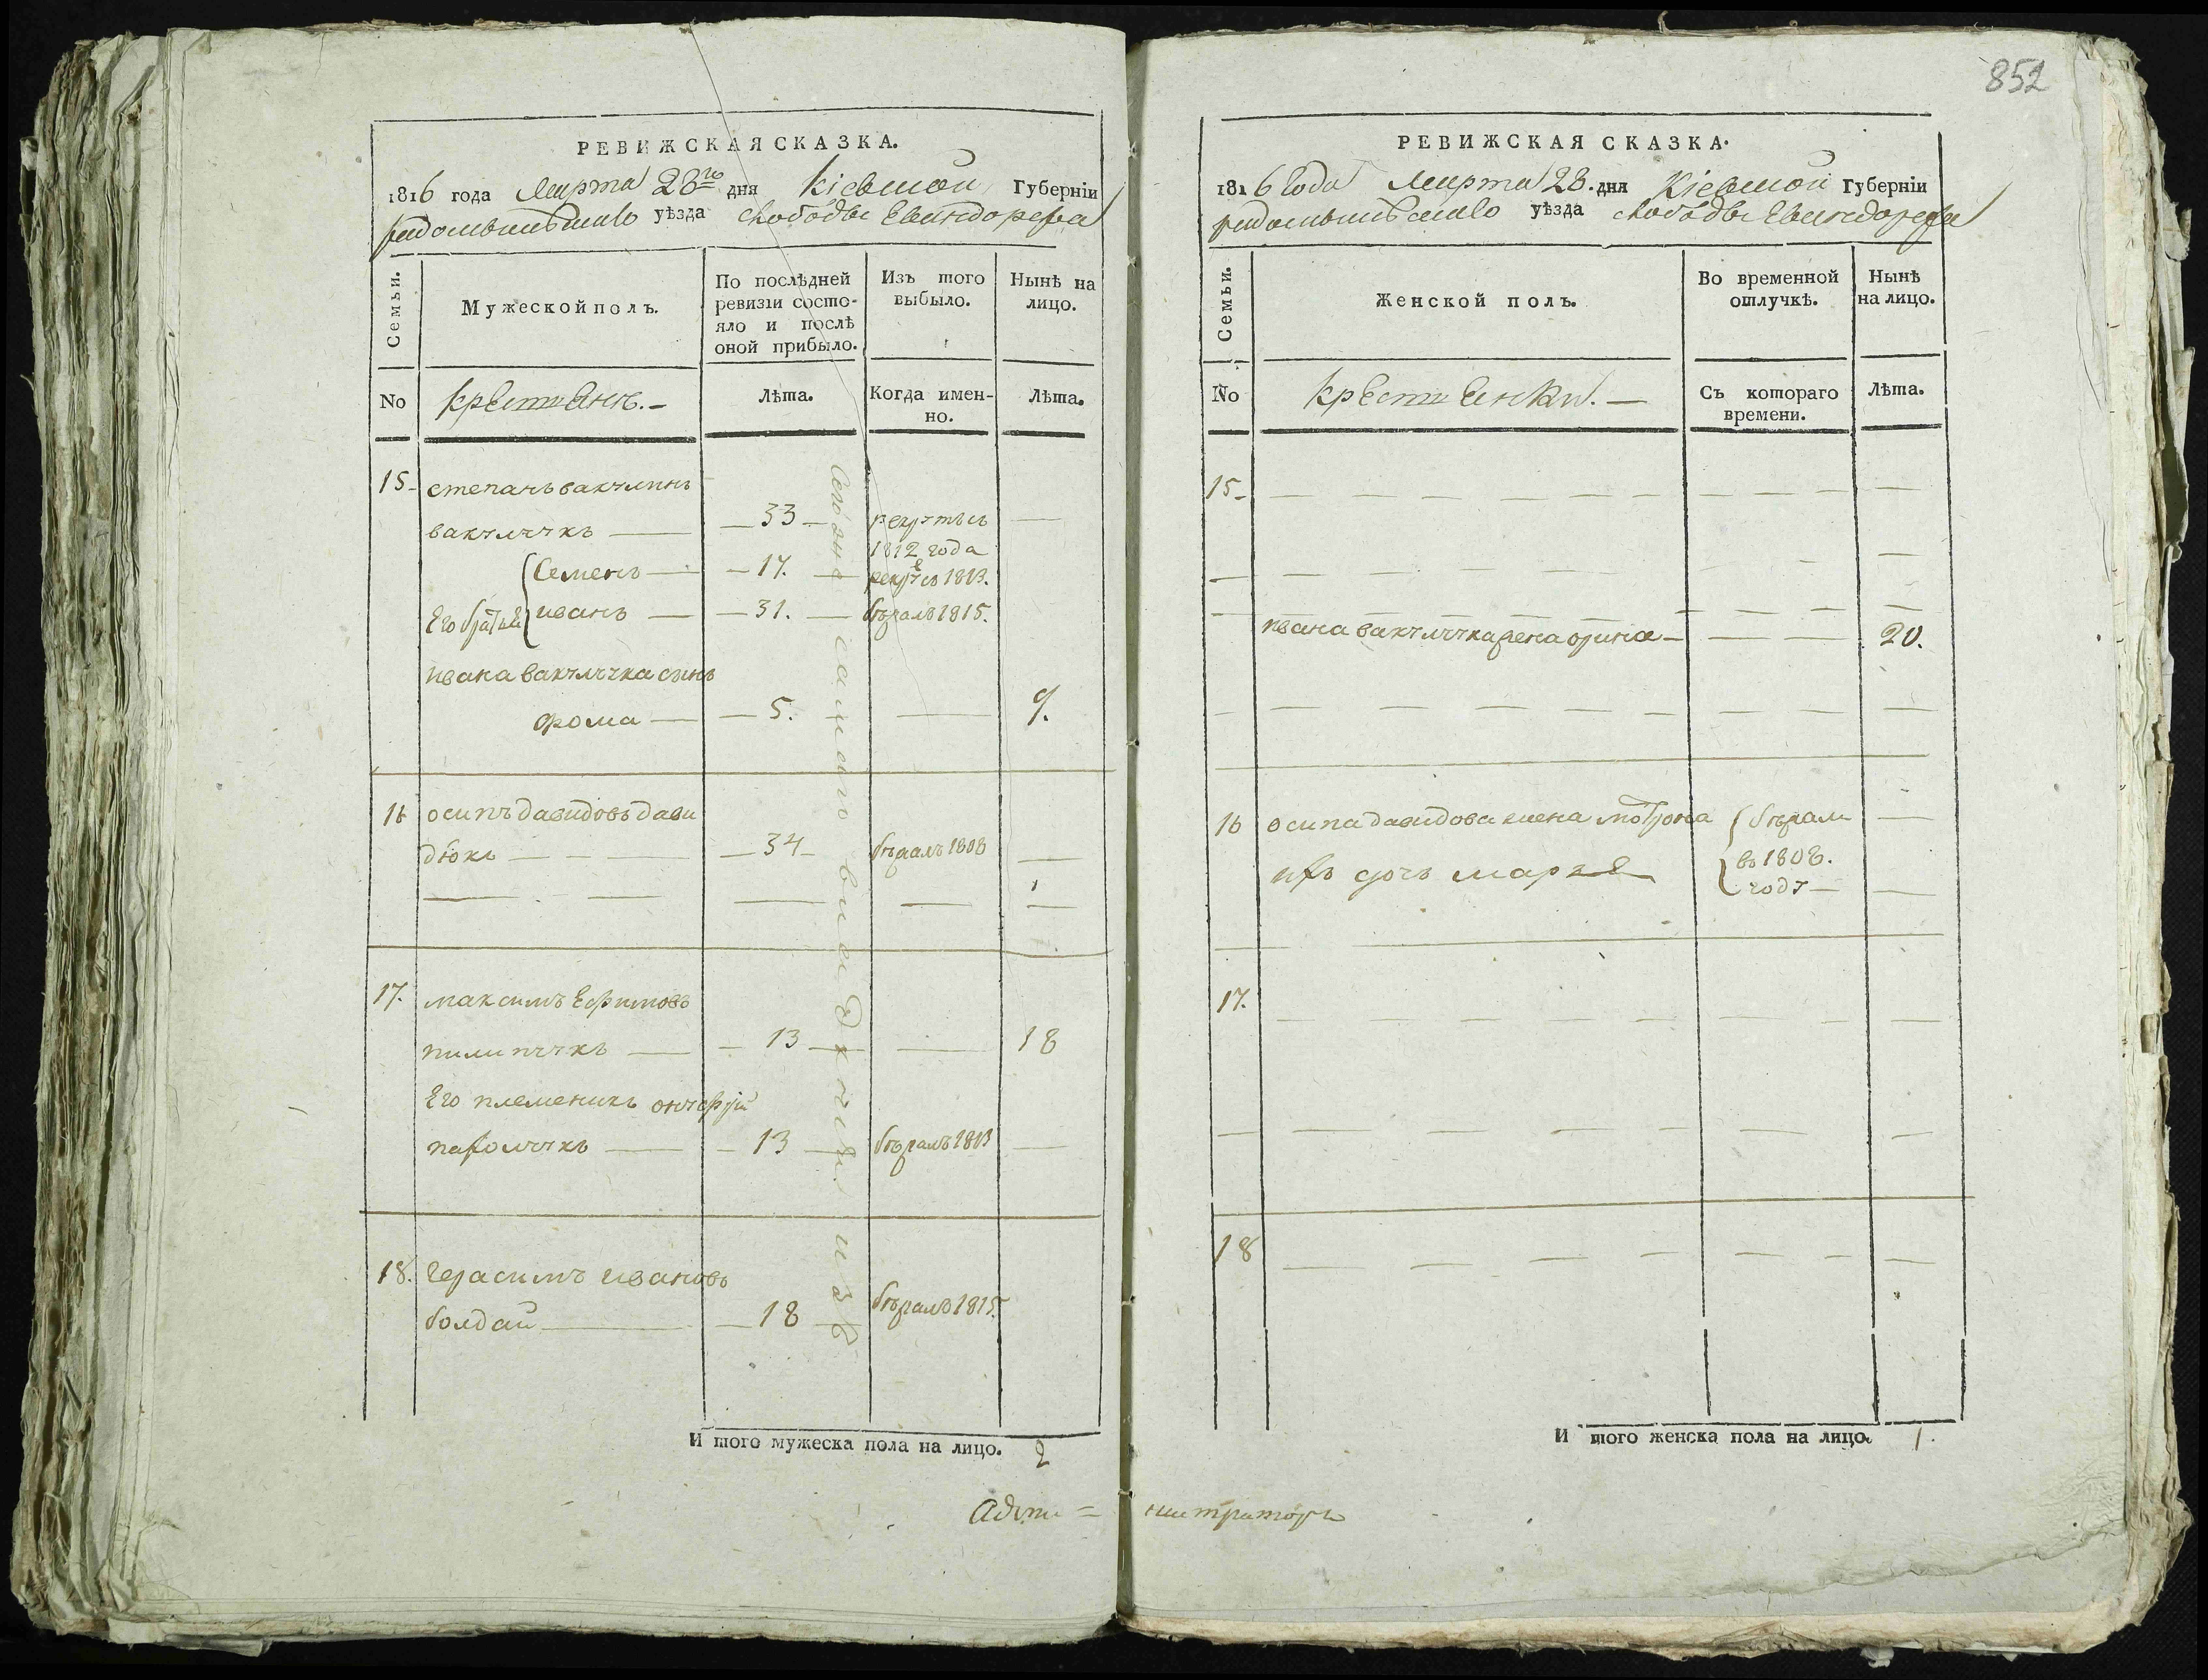 852
РЕВИЖСКАЯ СКАЗКА.
1816 года Марта 28го дня Кіевской Губерніи
радомышльскаго уѣзда слободы
Семьи.
Мужеской полъ.
По послѣдней ревизіи состо-
яло и послѣ
оной прибыло.
Изъ того
выбыло.
Нынѣ на
лицо.
No
крестьянъ.
Лѣта.
Когда имен-
но.
Лѣта.
15
степанъ вакулинъ
вакулчукъ 33 рекрутъ съ
1812 года
Семенъ 17. 1813.
Его братья иванъ 31. 1815.
ивана вакулчука сынъ
фома 5. 9.
16 осипъ давидовъ дави
дюкъ 34 1808
17. максимъ Ефимовъ
пилипчукъ 13 18
Его племеникъ онуфрій
13 1813
18. Герасимъ ивановъ
болдай 18 1815.
И того мужеска пола на лицо. 2
Адми =
РЕВИЖСКАЯ СКАЗКА.
1816 Года Марта 28. дня Кіевской Губерніи
радомышльскаго уѣзда слободы
Семьи.
Женской полъ.
Во временной
отлучкѣ.
Нынѣ
на лицо.
No
крестьянки.
Съ котораго
времени.
Лѣта.
15
ивана вакулчука жена орина 20.
16 осипа давидова жена мотрона
ихъ дочь марья въ 1808.
году
17.
18
И того женска пола на лицо 1.
нистраторъ